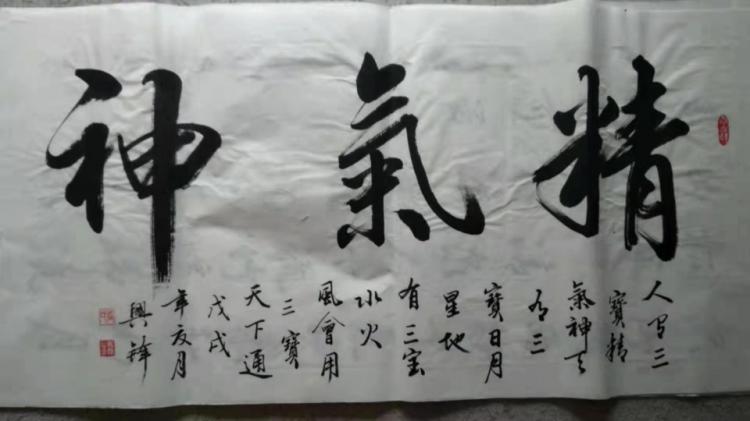 精氣神
人有三
寶精
氣神天
有三
寶日月
星地
有三宝
水火
風會用
三寶
天下通
戊戌
年夏月
興鋒